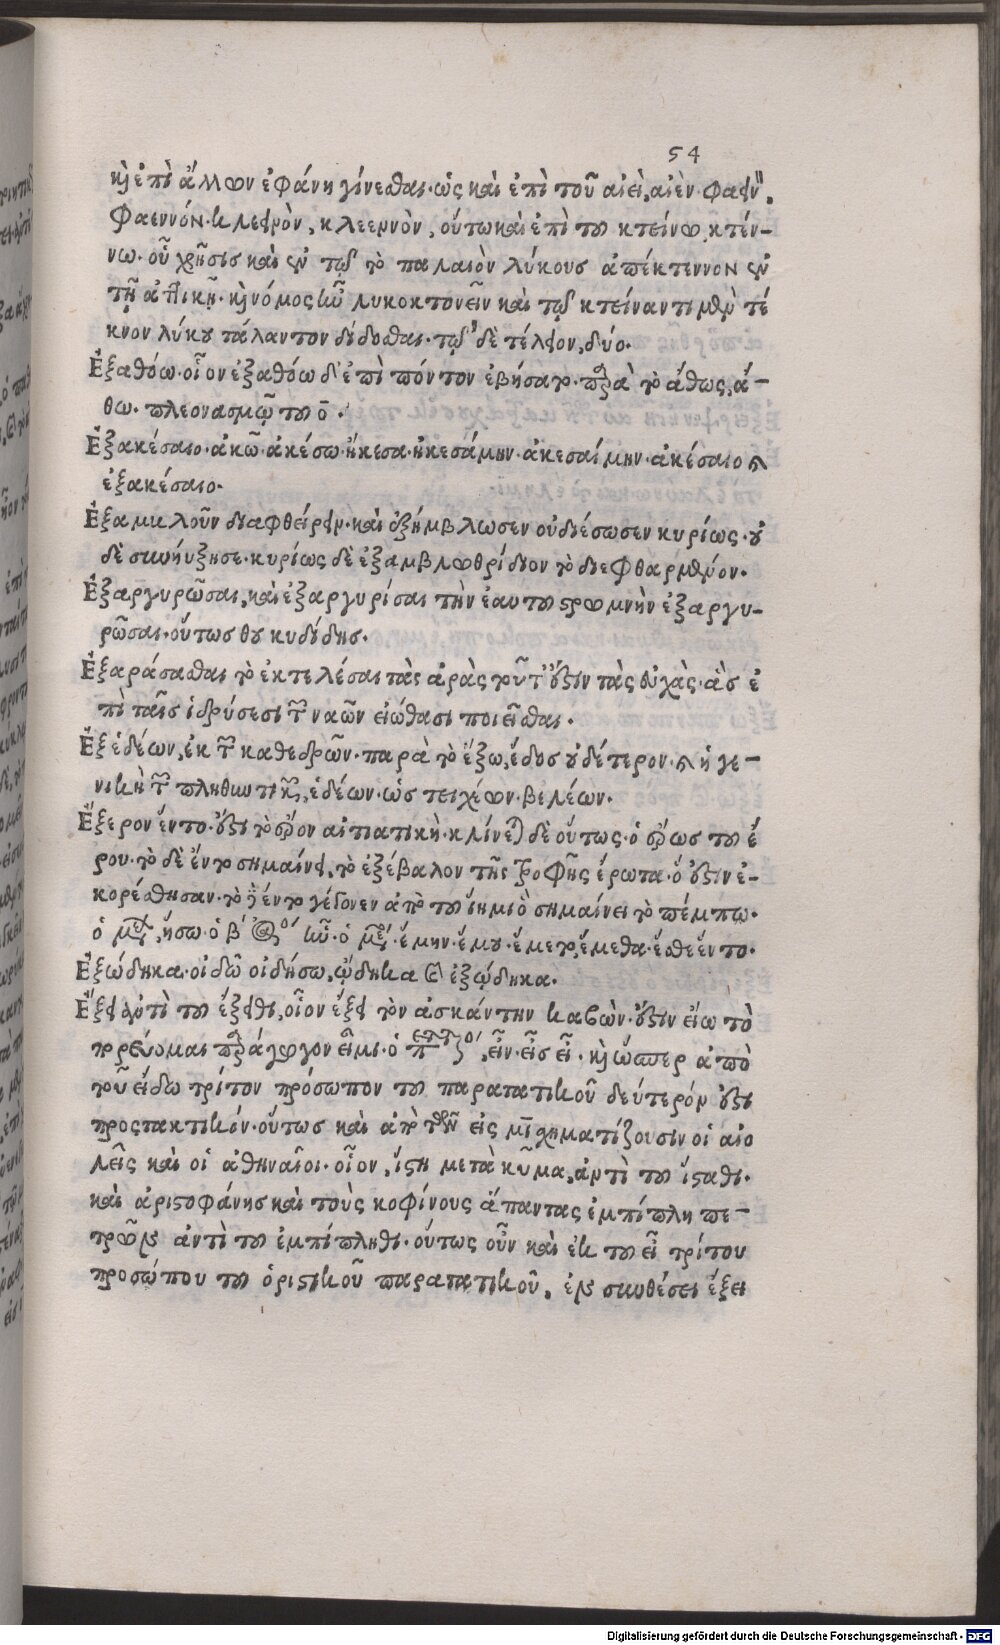 54
καὶ ἐπὶ ἄλλων ἐφάνη γίνεσθαι· ὡς καὶ ἐπὶ τοῦ αἰεὶ, αἰὲν·
φαεννόν· κλεεννὸν, οὕτω καὶ ἐπὶ του κτείνω, κτέν-
νω· οὗ χρῆσις καὶ ἐν τῷ τὸ παλαιὸν λύκους ἀπέκτεννον ἐν
τῇ ἀττικῇ· καὶ νόμος ἦν λυκοκτονεῖν καὶ τῷ κτείναντι μὲν τέ
κνον λύκου τάλαντον δίδοσθαι· τῷ δὲ τέλειον, δύο·
Ἐξαθόω· οἷον ἐξαθόω δ' ἐπὶ πόντον ἐβήσατο· παρὰ τὸ ἄθως, ἄ-
θω· πλεονασμῷ του ο̄·
Ἐξακέσαιο· ἀκῶ· ἀκέσω· ἤκεσα· ἠκεσάμην· ἀκεσαίμην· ἀκέσαιο καὶ
ἐξακέσαιο·
Ἐξαμβλοῦν διαφθείρειν· καὶ ἐξήμβλωσεν οὐ διέσωσεν κυρίως· οὐ
δὲ συνηύξησε· κυρίως δὲ ἐξαμβλωθρίδιον τὸ διεφθαρμένον·
Ἐξαργυρῶσαι, καὶ ἐξαργυρίσαι τὴν ἑαυτου στρωμνὴν ἐξαργυ-
ρῶσαι· οὕτως θουκυδίδης·
Ἐξαράσασθαι τὸ ἐκτελέσαι τὰς ἀρὰς τοῦτ' ἔστιν τὰς εὐχὰς· ἃς ἐ
πὶ ταῖς ἱδρύσεσι τῶν ναῶν εἰώθασι ποιεῖσθαι·
Ἐξ ἑδέων, ἐκ τῶν καθεδρῶν· παρὰ τὸ ἕξω, ἕδος οὐδέτερον· καὶ ἡ γε-
νικὴ τῶν πληθυντικῶν, ἑδέων· ὡς τειχέων· βελέων·
Ἐξ ἔρον ἕντο· ἔστι τὸ ἔρον αἰτιατικὴ· κλίνεται δὲ οὕτως· ὁ ἔρως του ἔ
ρου· τὸ δὲ ἕντο σημαίνει, τὸ ἐξέβαλον τῆς τροφῆς ἔρωτα· ὅ ἐστιν ἐ-
κορέσθησαν· τὸ δὲ ἕντο γέγονεν ἀπὸ του ἵημι ὃ σημαίνει τὸ πέμπω·
ὁ μέλλων, ἥσω· ὁ β' ἀόριστος ἦν· ὁ μέσος· ἕμην· ἕσο· ἕμετο, ἕμεθα· ἕσθε ἕντο·
Ἐξώδηκα· οἰδῶ οἰδήσω, ᾤδηκα καὶ ἐξώδηκα·
Ἔξει ἀντὶ του ἔξιθι, οἷον ἔξει τὸν ἀσκάντην λαβών· ἔστιν εἴω τὸ
πορεύομαι παράγωγον εἶμι· ὁ παρατατικὸς, εἶν· εἶς εἶ· καὶ ὥσπερ ἀπὸ
τοῦ εἴδω τρίτον πρόσωπον του παρατατικοῦ δεύτερόν ἐστι
προστακτικόν· οὕτως καὶ ἀπὸ τῶν εἰς μῑ σχηματίζουσιν οἱ αἰο
λεῖς καὶ οἱ ἀθηναῖοι· οἷον, ἵστη μετὰ κῦμα, ἀντὶ του ἵσταθι·
καὶ ἀριστοφάνης καὶ τοὺς κοφίνους ἅπαντας ἐμπίπλη πε-
τρῶν ἀντὶ του ἐμπίπληθι· οὕτως οὖν καὶ ἐκ του εἶ τρίτου
προσώπου του ὁριστικοῦ παρατατικοῦ, ἐν συνθέσει ἔξει